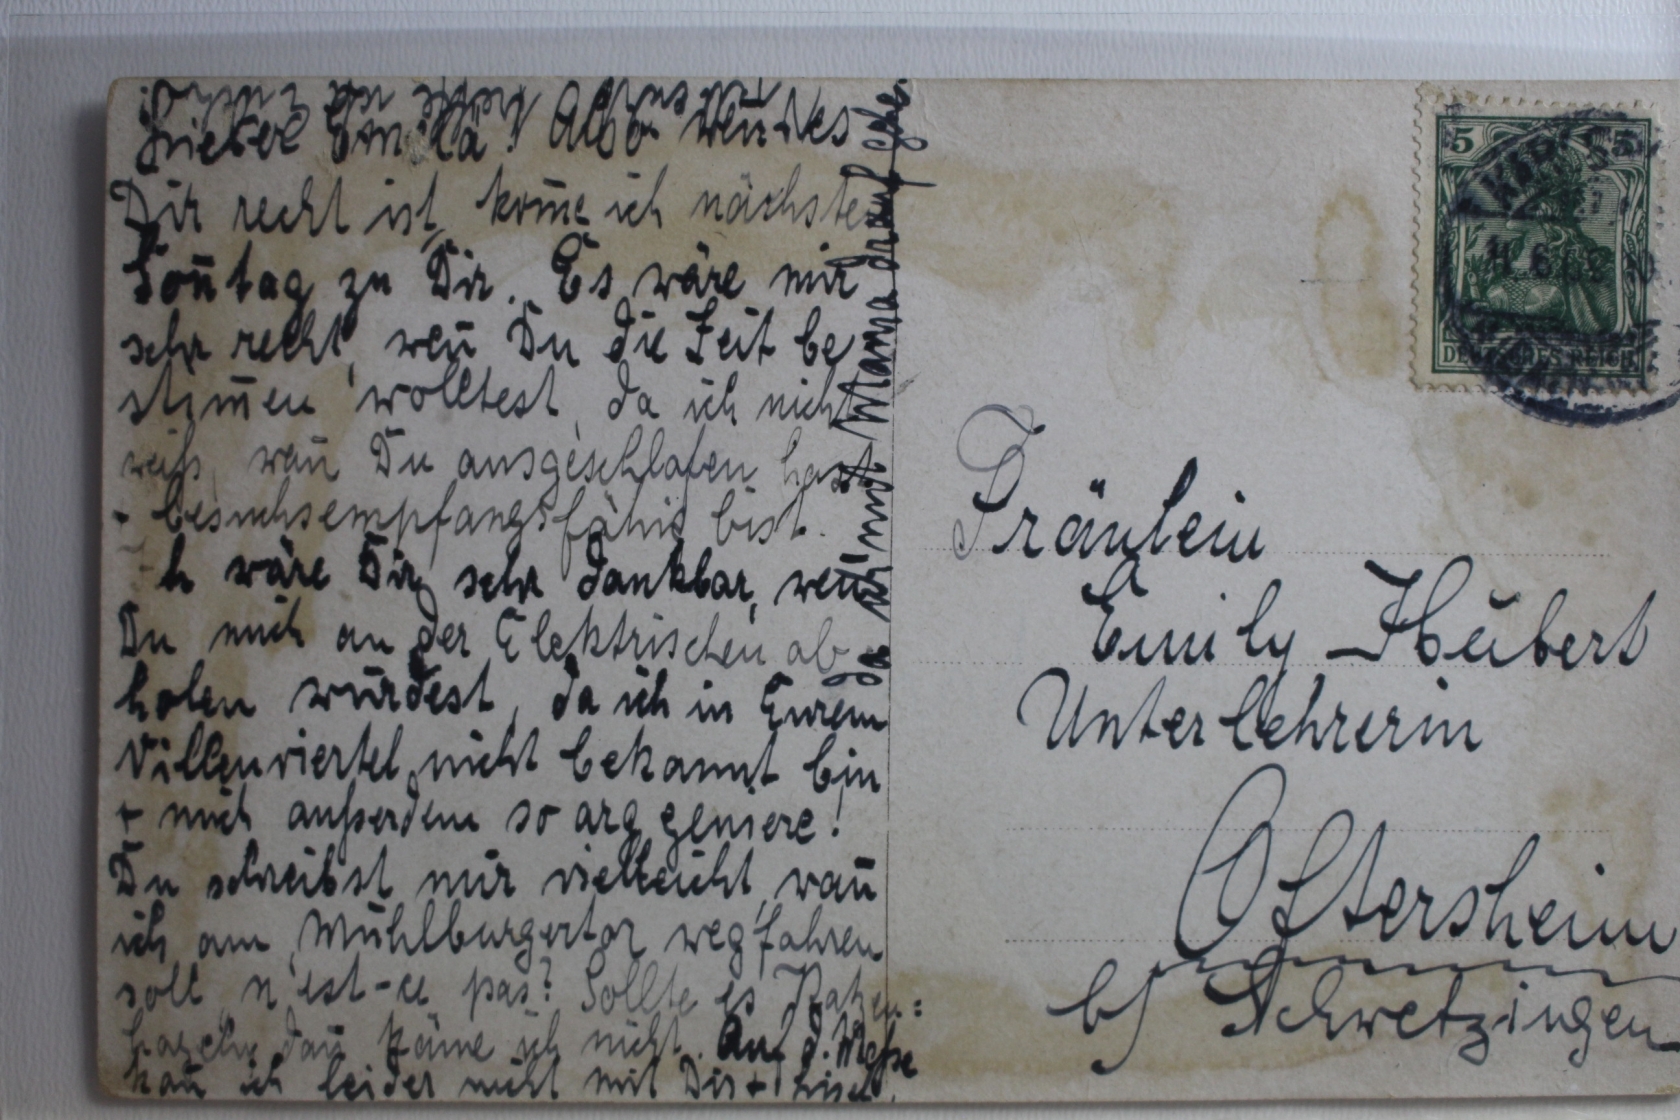 Lieber Emila! Also weñ es
Dir recht ist, kom̄e ich nächsten
Soñtag zu Dir. Es wäre mir
sehr recht, weñ Du die Zeit be
stim̄en wolltest, da ich nicht
weiß, wañ Du ausgeschlafen hast
+ besuchsempfangsfähig bist.
Ich wäre Dir sehr dankbar, weñ
Du mich an der Elektrischen ab
holen würdest, da ich in Eurem
Villenviertel nicht bekannt bin
+ mich außerdem so arg geniere!
Du schreibst mir vielleicht, wañ
ich am Mühlburgertor wegfahren
soll n'est-ce pas? Sollte es Katzen:
hageln, dañ käme ich nicht. Auf d. Messe
kañ ich leider nicht mit Dir +
da ich mit Mama drauf gehe.
Fräulein
Emily Hübert
Unterlehrerin
Oftersheim
b/ Schwetzingen
5 5
DEUTSCHES REICH